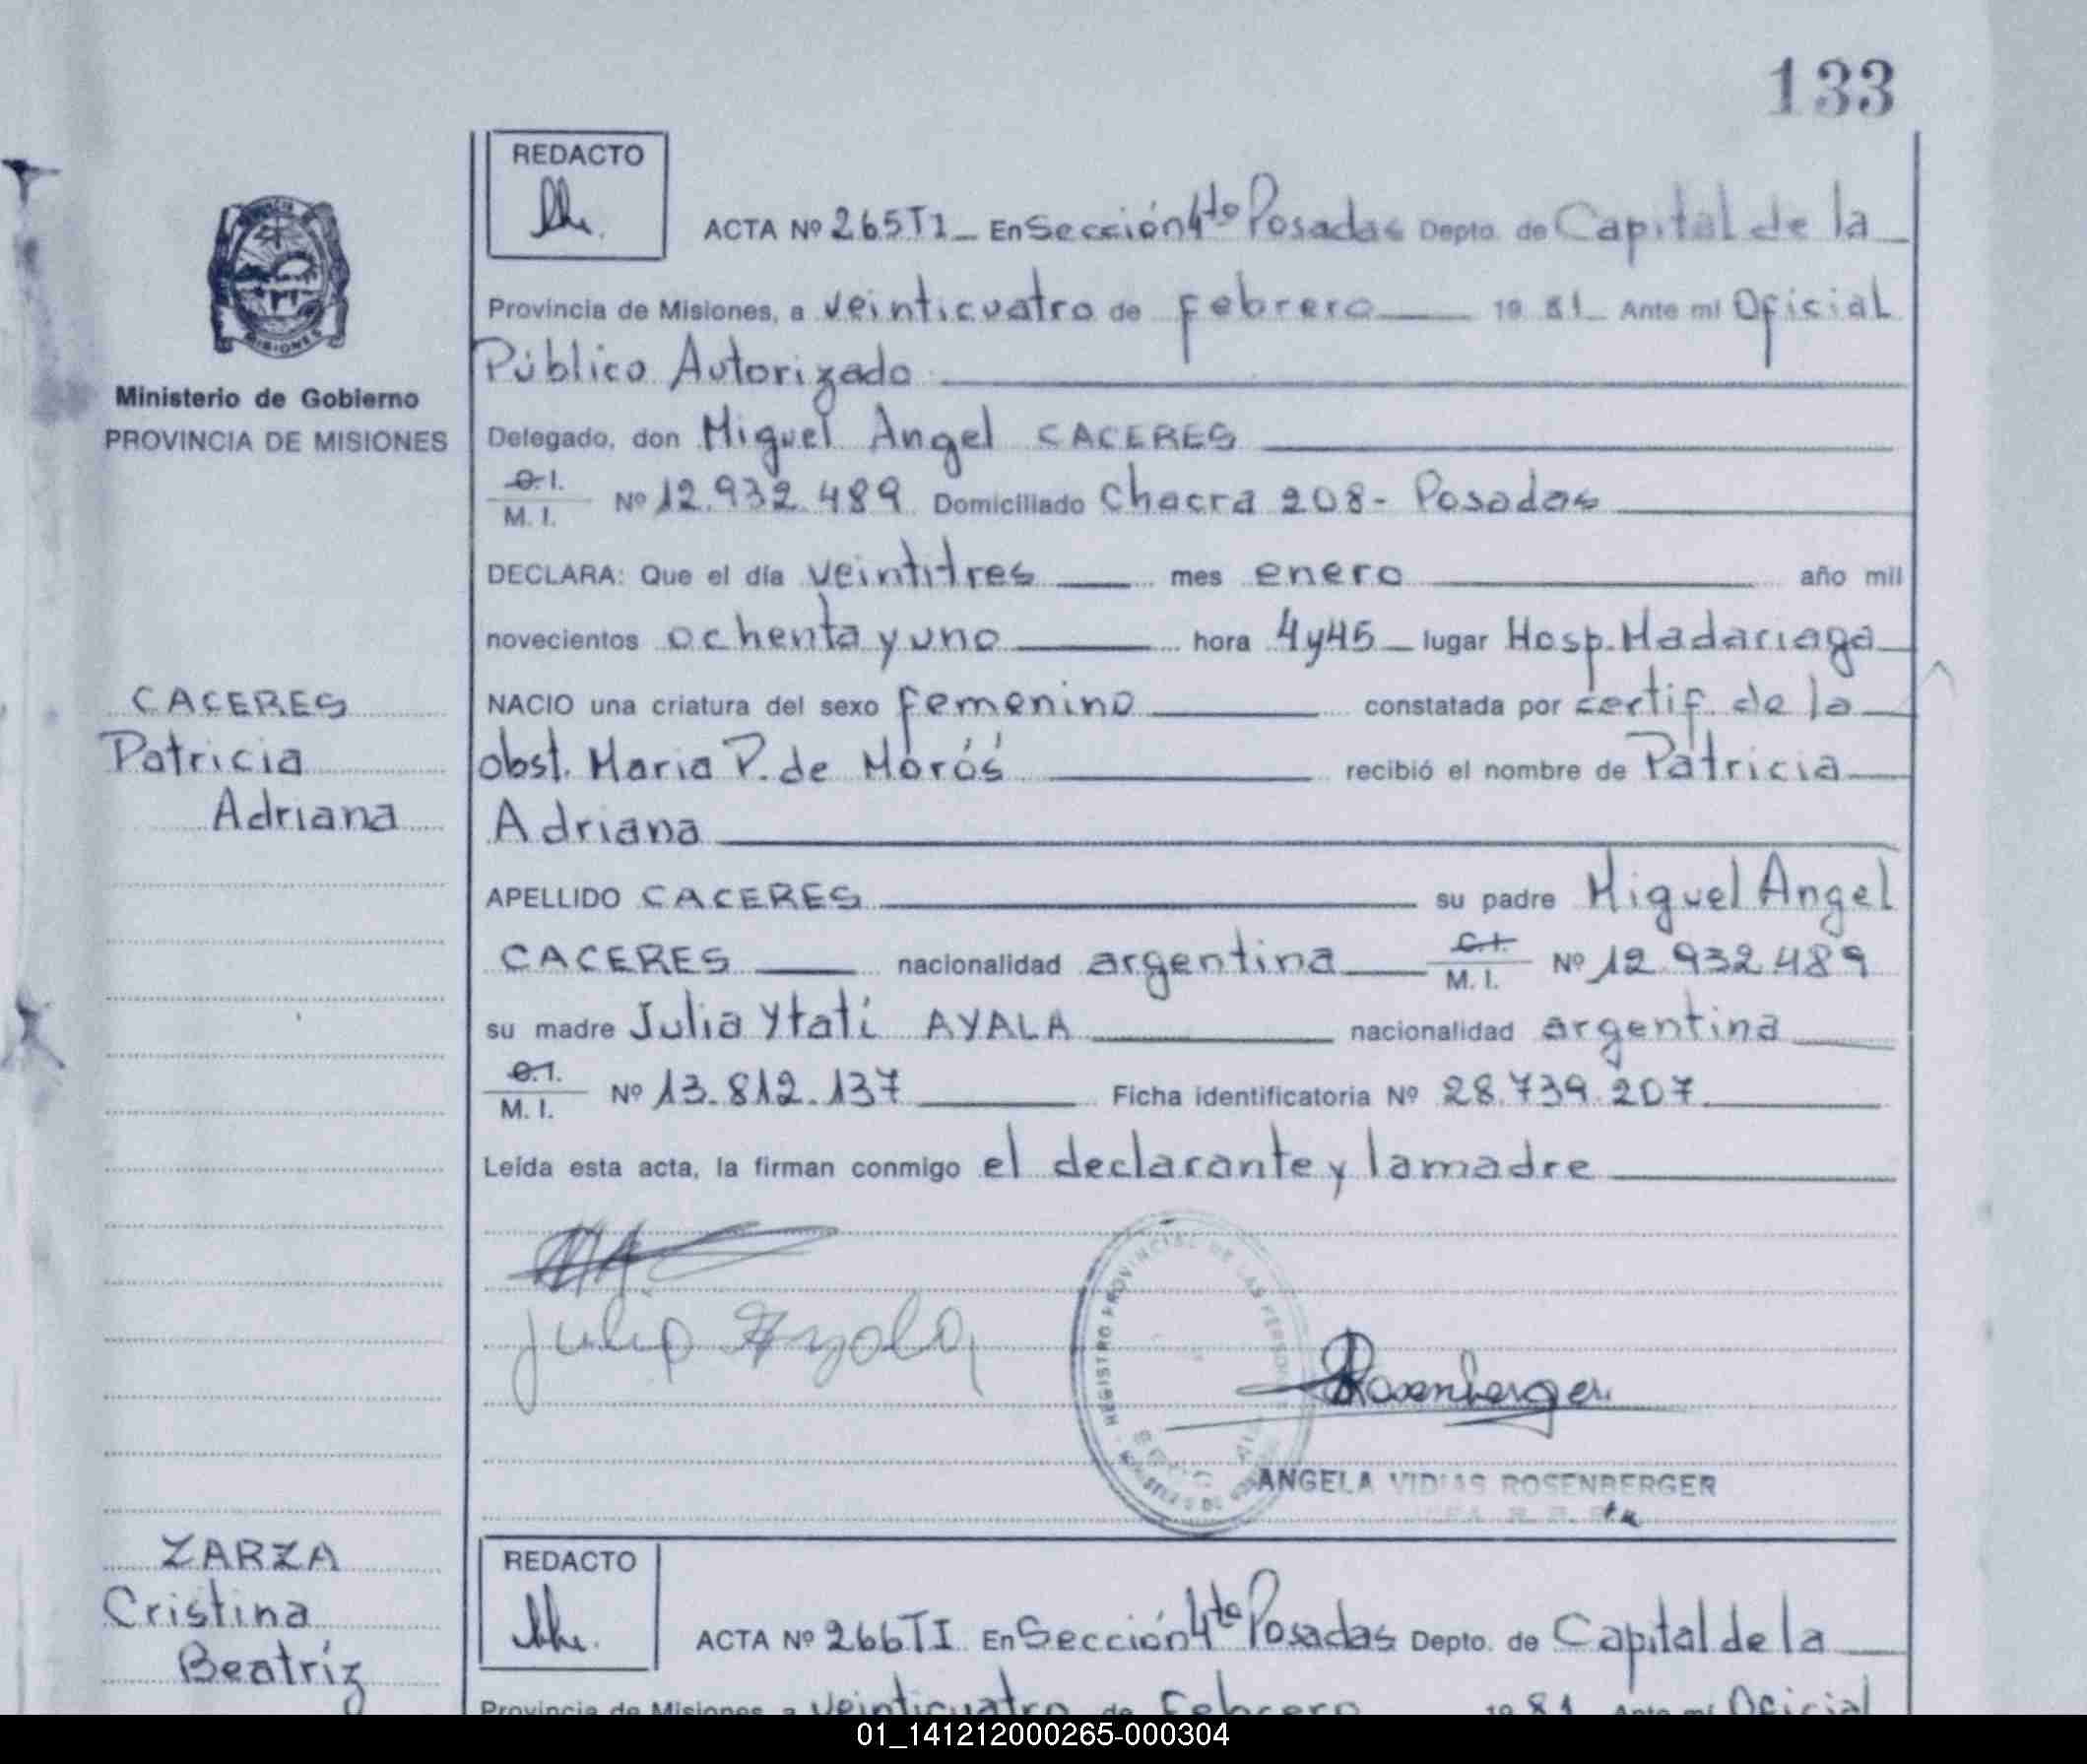 133
REDACTO
ACTA Nº 265TI En Sección 4to Posadas Depto. de Capital de la
Provincia de Misiones, a veinticuatro de Febrero 1981 Ante mí Oficial
Público Autorizado
Ministerio de Gobierno
PROVINCIA DE MISIONES
Delegado, don Miguel Angel CACERES
C.I.
M. I. Nº 12.932.489 Domiciliado Chacra 208- Posadas
DECLARA: Que el día veintitres mes enero año mil
novecientos ochenta y uno hora 4y45 lugar Hosp. Madariaga
CACERES
Patricia
Adriana
NACIO una criatura del sexo femenino constatada por certif. de la
obst. Maria P. de Morós recibió el nombre de Patricia
Adriana
APELLIDO CACERES su padre Miguel Angel
CACERES nacionalidad argentina C.I.
M. I. Nº 12.932.489
su madre Julia Ytatí AYALA nacionalidad argentina
C.I.
M. I. Nº 13.812.137 Ficha identificatoria Nº 28.739.207
Leída esta acta, la firman conmigo el declarante y la madre
Julia Ayala
REGISTRO PROVINCIAL DE LAS PERSONAS
Rosenberger
ANGELA VIDIAS ROSENBERGER
ZARZA
Cristina
Beatríz
REDACTO
ACTA Nº 266TI En Sección 4to Posadas Depto. de Capital de la
Provincia de Misiones, a veinticuatro de Febrero 1981 Ante mí Oficial
01_141212000265-000304